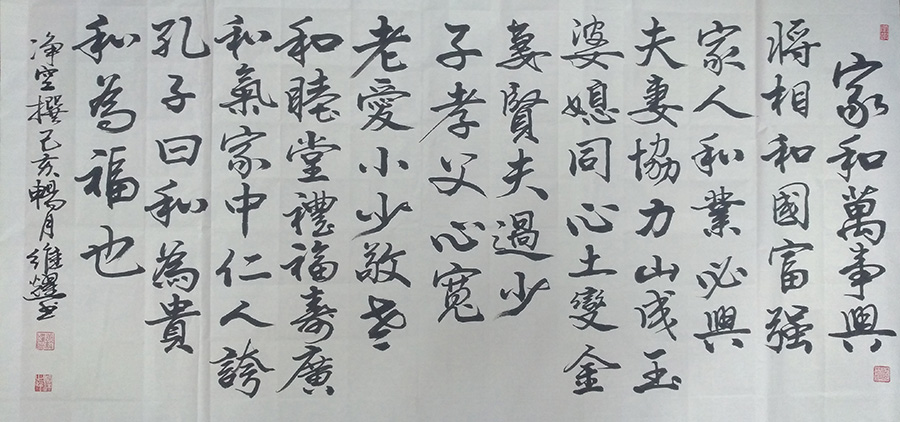 家和萬事興
將相和國富强
家人和業必興
夫妻協力山成玉
婆媳同心土變金
妻賢夫過少
子孝父心寬
老愛小少敬老
和睦堂禮福壽廣
和氣家中仁人誇
孔子曰和為貴
和為福也
净空撰己亥暢月維